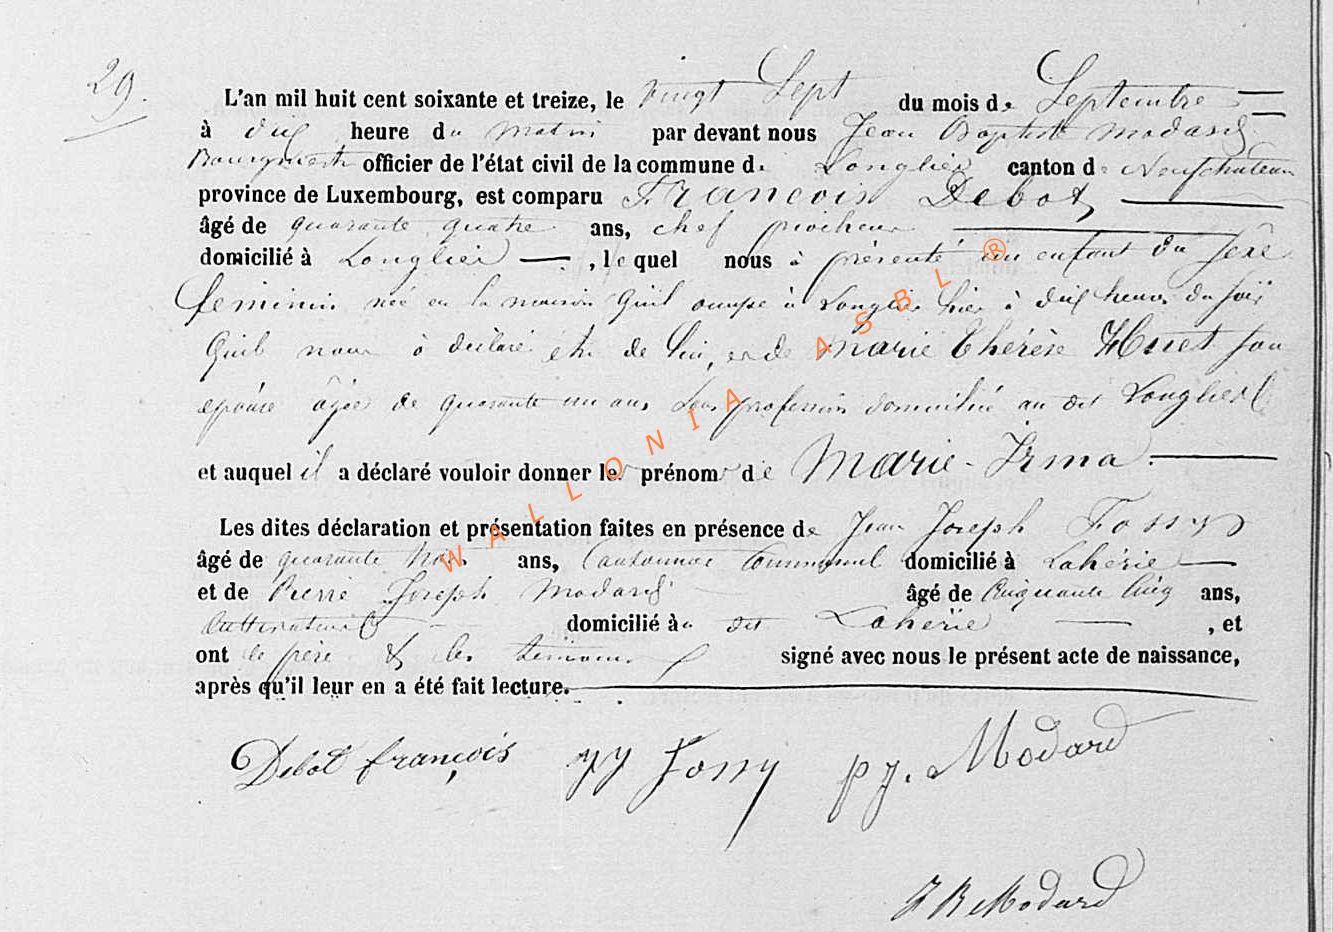 29.
L'an mil huit cent soixante et treize, le vingt Sept du mois de Septembre
à dix heure du matin par devant nous Jean Baptiste Modard
Bourgmestre officier de l'état civil de la commune de Longlier canton de Neufchateau
province de Luxembourg, est comparu François Debot
âgé de quarante quatre ans, chef piocheur
domicilié à Longlier, lequel nous à présenté un enfant du sexe
feminin née en la maison qu'il occupe à Longlier hier à dix heures du soir
Qu'il nous à déclaré être de lui, et de Marie Thérèse Huet son
épouse âgée de quarante un ans sans profession domiciliée au dit Longlier
et auquel il a déclaré vouloir donner les prénoms de Marie-Irma.
Les dites déclaration et présentation faites en présence de Jean Joseph Fossy
âgé de quarante trois ans, Cantonnier Communal domicilié à Lahérie
et de Pierre Joseph Modard âgé de Cinquante Cinq ans,
Cultivateur domicilié à dit Lahérie, et
ont le père & les témoins signé avec nous le présent acte de naissance,
après qu'il leur en a été fait lecture.
Debot françois JJ Fossy pj. Modard
J B Modard
WALLONIA ASBL ®